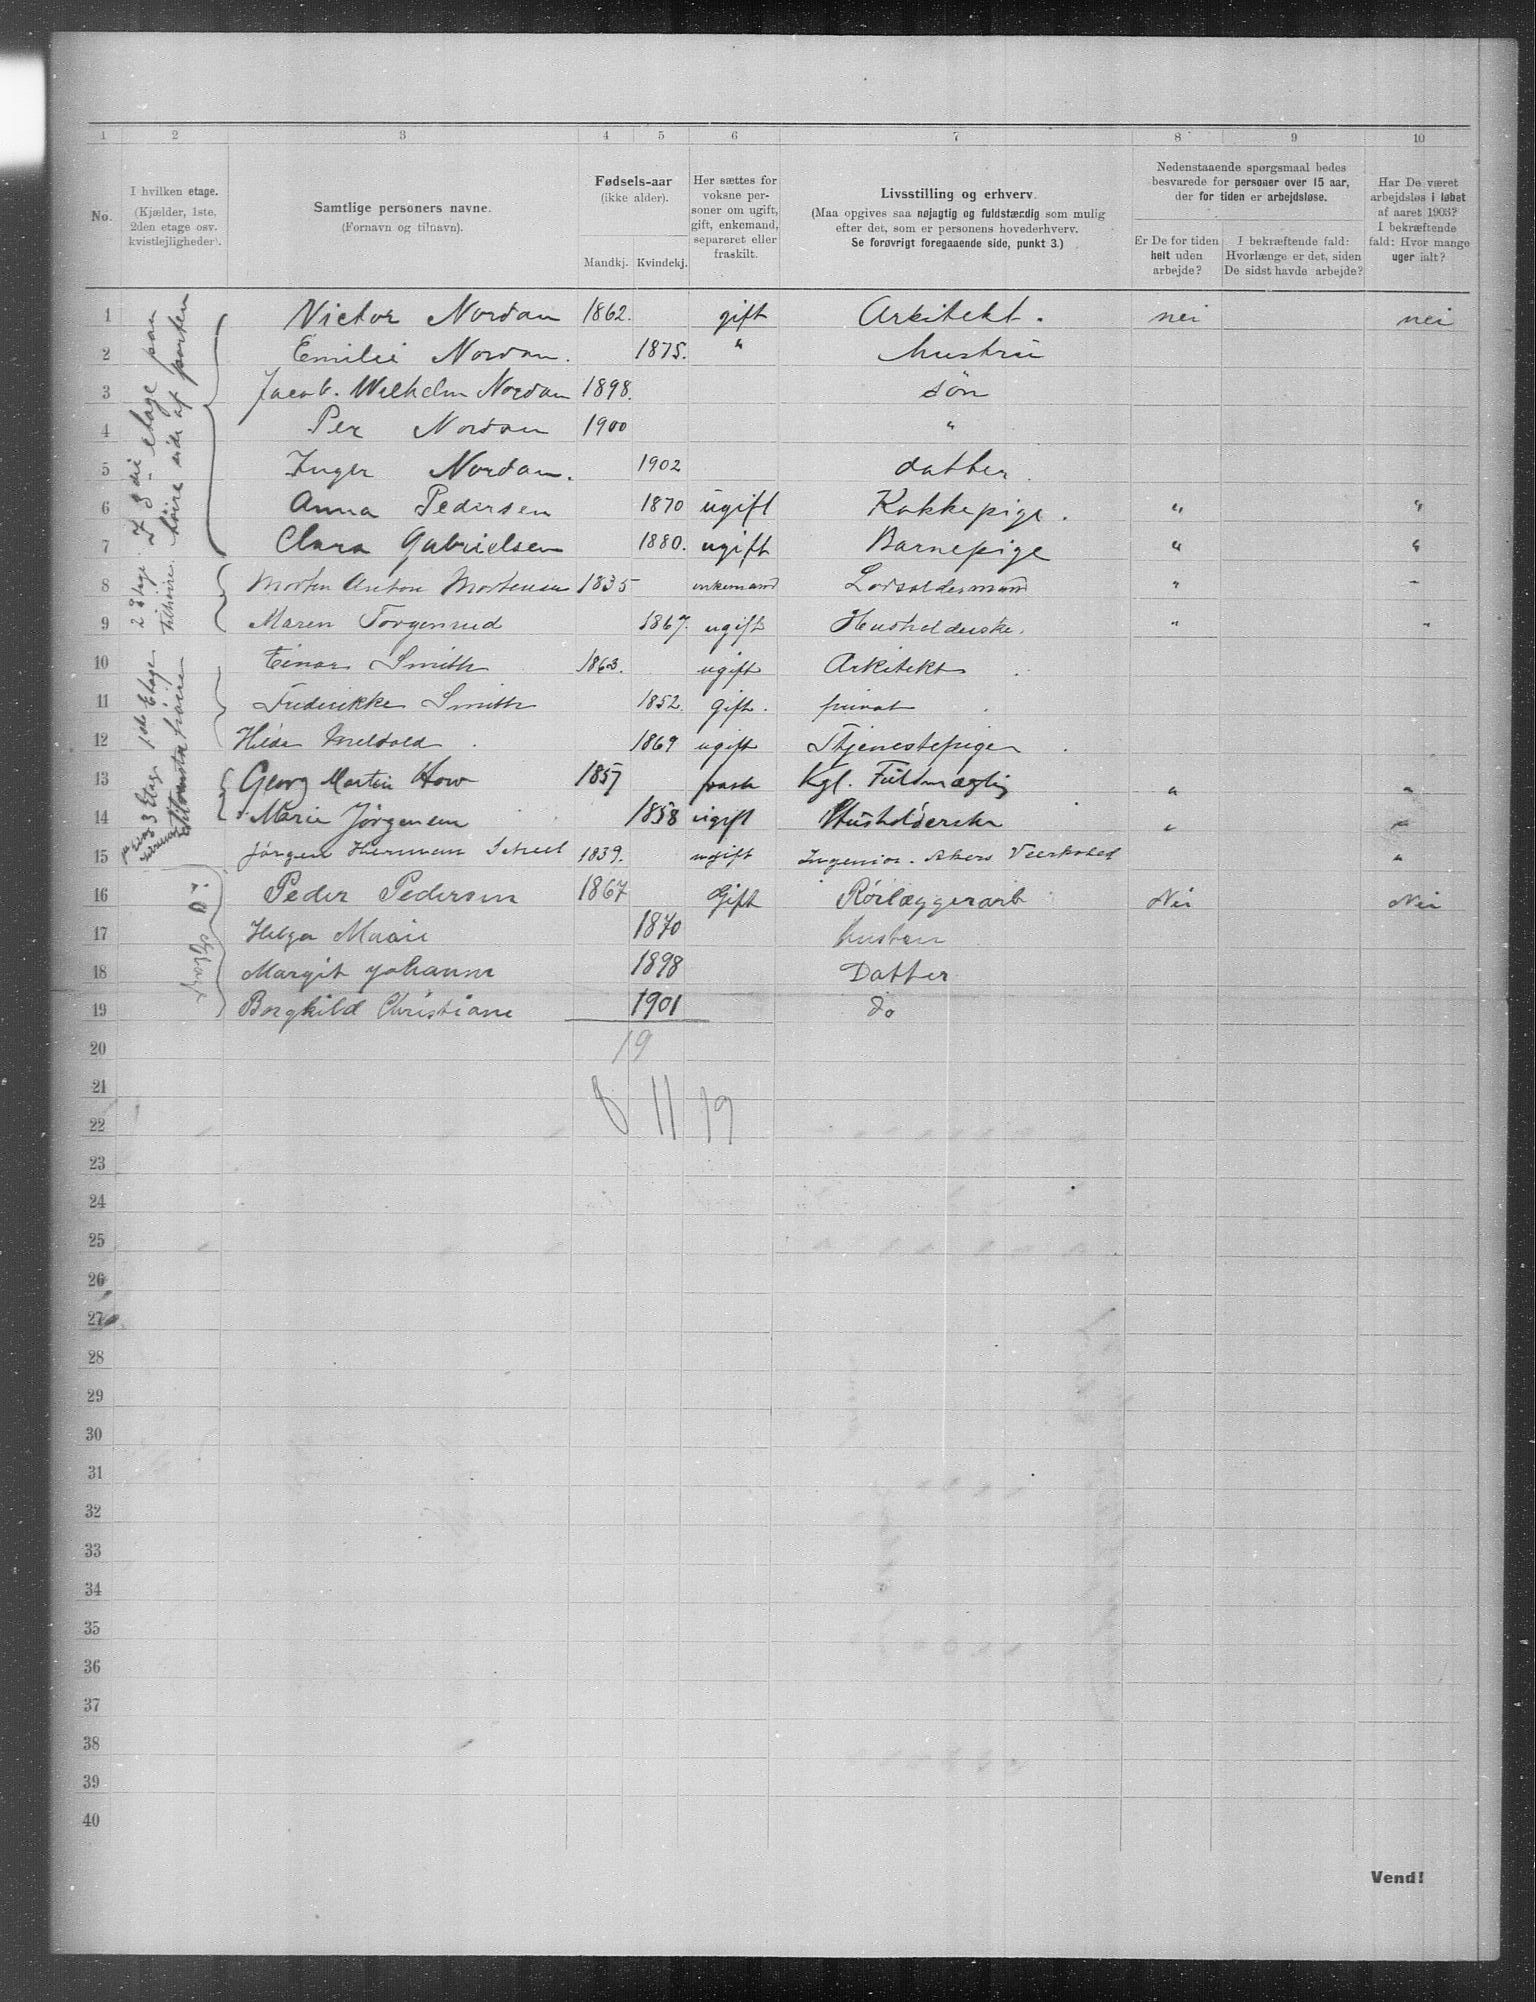 1 2 3 4 5 6 7 8 9 10
No.
I hvilken etage.
(Kjælder, 1ste,
2den etage osv.
kvistlejligheder).
Samtlige personers navne.
(Fornavn og tilnavn).
Fødsels-aar
(ikke alder).
Mandkj. Kvindekj.
Her sættes for
voksne per-
soner om ugift,
gift, enkemand,
separeret eller
fraskilt.
Livsstilling og erhverv.
(Maa opgives saa nøjagtig og fuldstændig som mulig
efter det, som er personens hovederhverv.
Se forøvrigt foregaaende side, punkt 3.)
Nedenstaaende spørgsmaal bedes
besvarede for personer over 15 aar,
der for tiden er arbejdsløse.
Er De for tiden
helt uden
arbejde?
I bekræftende fald:
Hvorlænge er det, siden
De sidst havde arbejde?
Har De været
arbejdsløs i løbet
af aaret 1903?
I bekræftende
fald: Hvor mange
uger ialt?
I 3die etage paa
høire side af porten
2 Etage
tilhøire.
1ste Etage
3 Etage
1 Victor Nordan 1862. gift Arkitekt. nei nei
2 Emilie Nordan. 1875. " hustru
3 Jacob. Wilhelm Nordan 1898. søn
4 Per Nordan 1900 "
5 Inger Nordan. 1902 datter
6 Anna Pedersen 1870 ugift Kokkepige. " "
7 Clara Gabrielsen 1880. ugift Barnepige " "
8 Morten Anton Mortensen 1835 enkemand Lodsoldermand " "
9 Maren Torgenrud 1867. ugift Husholderske. " "
10 Einar Smith 1863. ugift Arkitekt
11 Frederikke Smith 1852. gift. privat
12 Hilda 1869 ugift Tjenestepige
13 Georg Martin How 1857 Kgl. Fuldmægtig " "
14 Marie Jørgensen 1858 ugift Husholderske " "
15 Jørgen Herman Scheel 1839. ugift Ingeniør. Akers Værksted "
16 Peder Pedersen 1867 Gift Rørlæggerarb Nei Nei
17 Helga Marie 1870 hustru
18 Margit Johanne 1898 Datter
19 Borghild Christiane 1901 do
20 19
21 8 11 19
22
23
24
25
26
27
28
29
30
31
32
33
34
35
36
37
38
39
40
Vend!